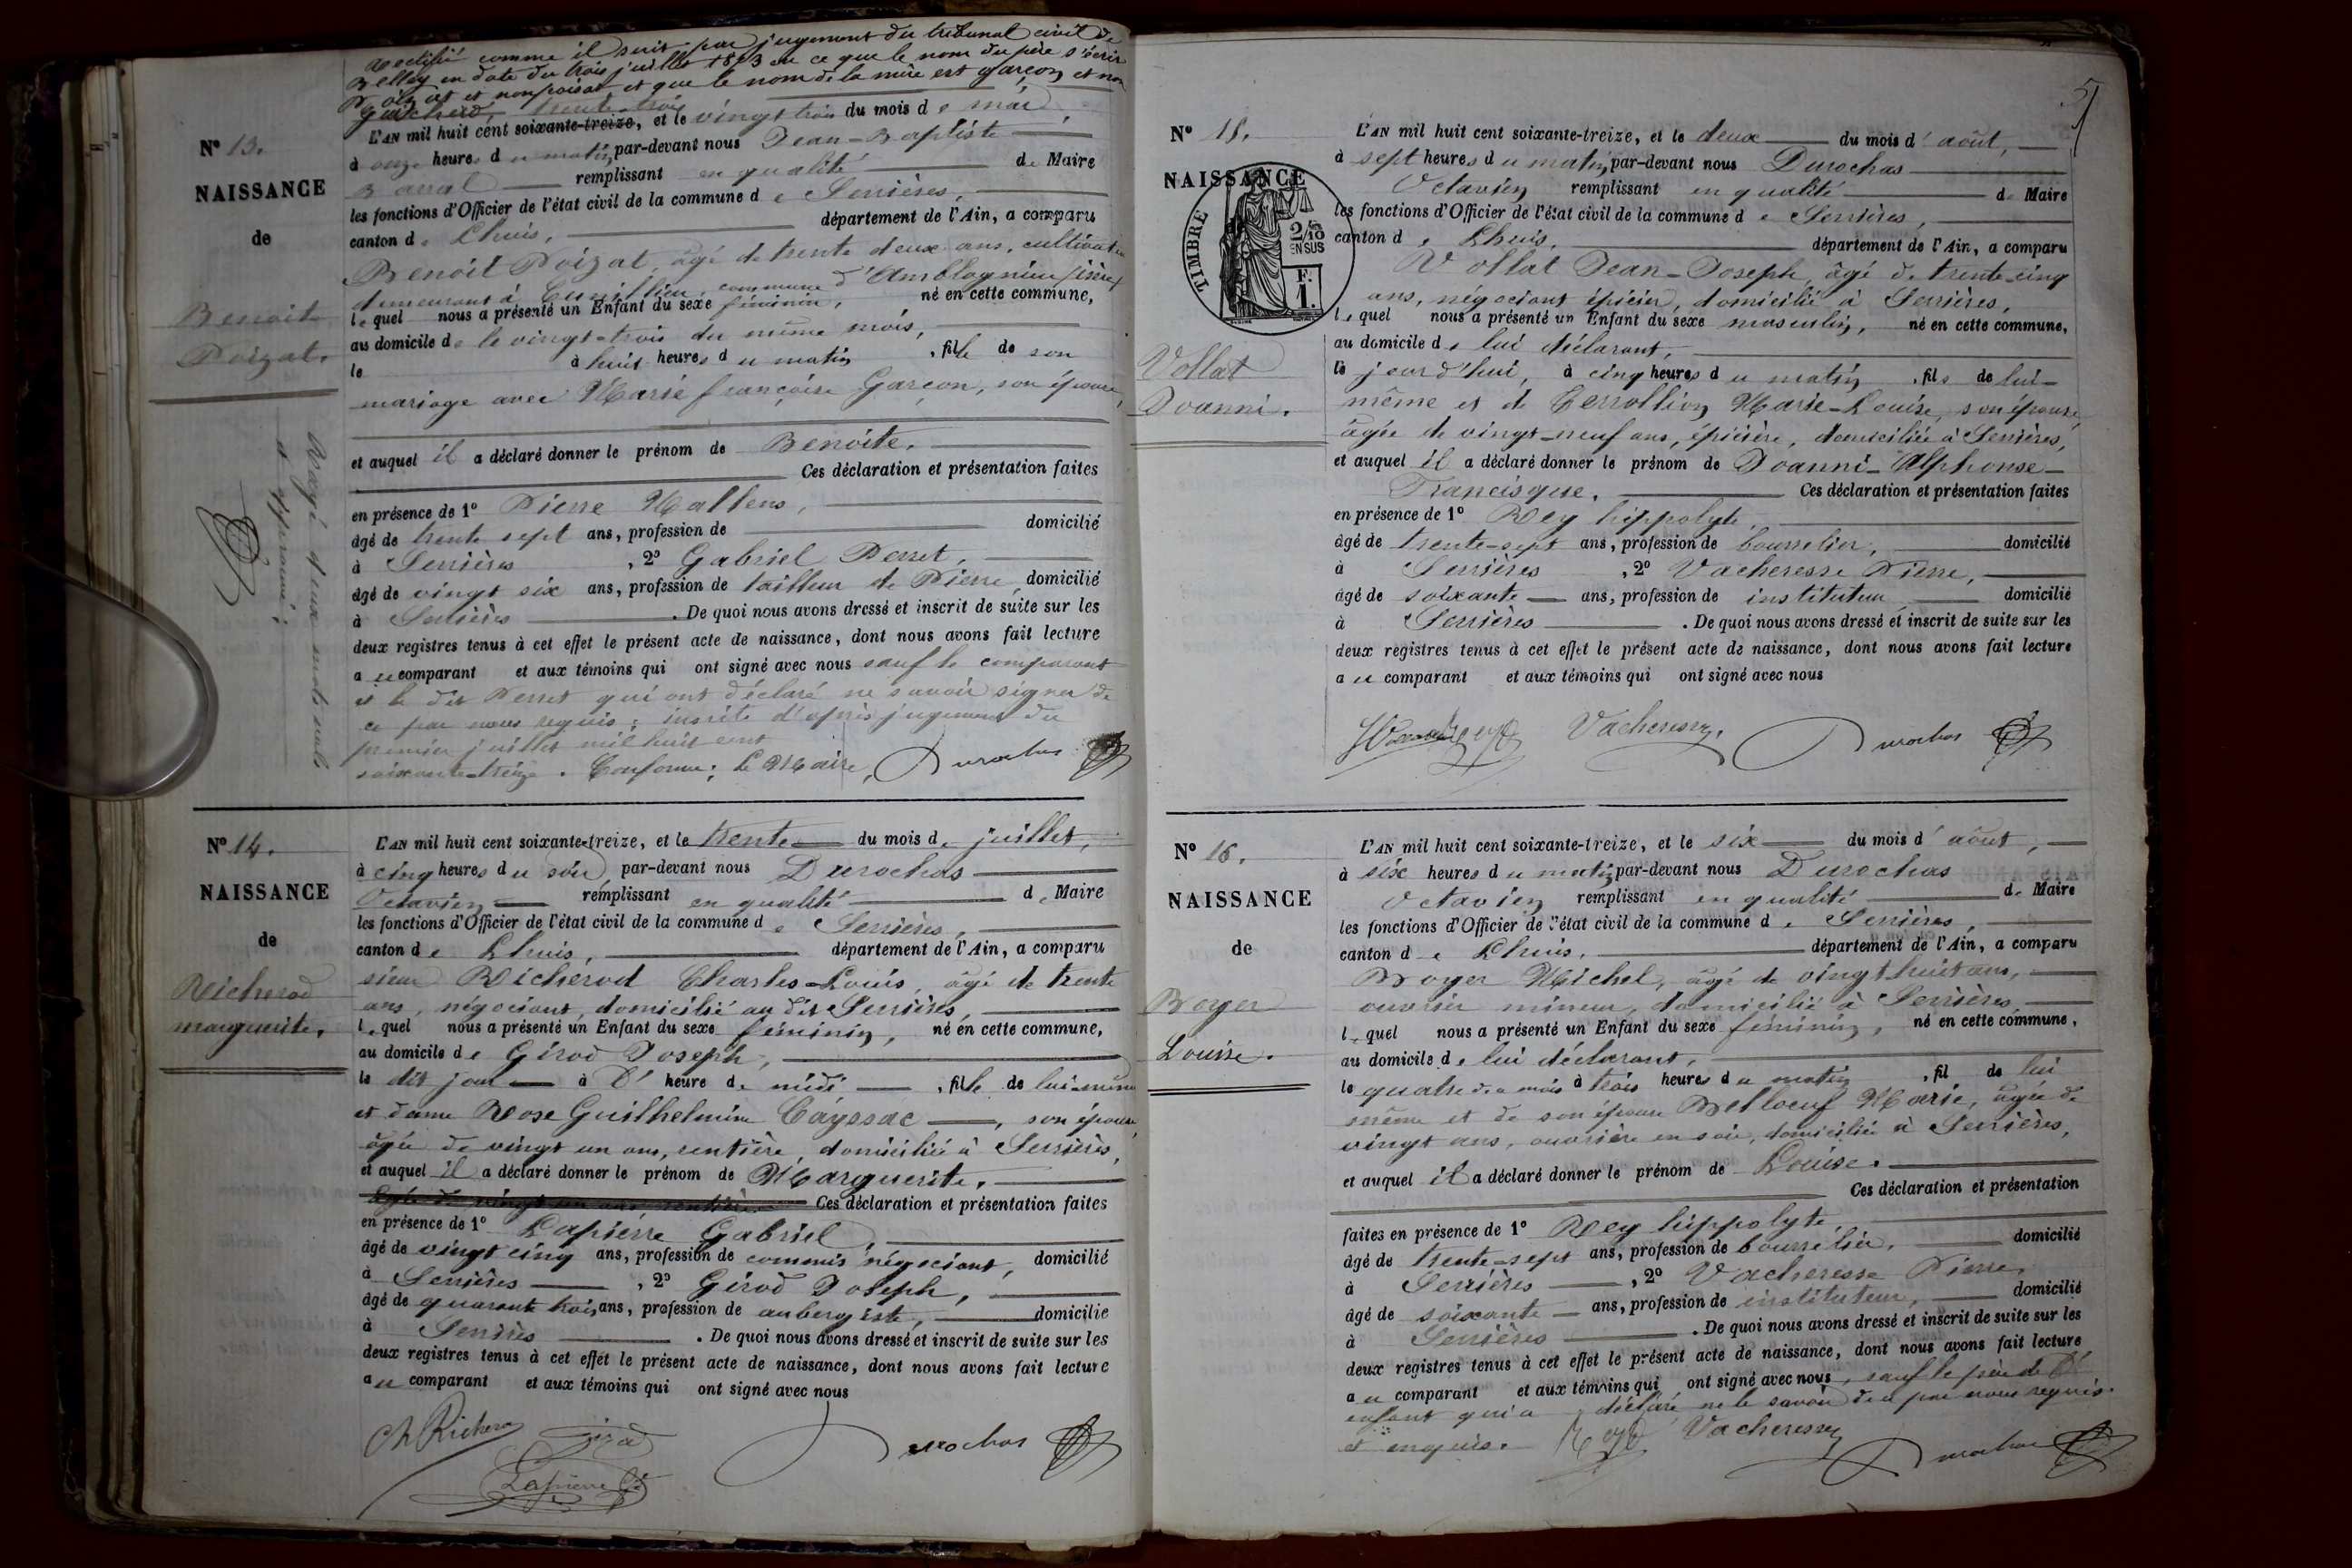 Rectifié comme il suit par jugement du tribunal civil de
Belley en date du trois juillet 1873 en ce que le nom du père s'écrit
Poizat et non poisat et que le nom de la mère est garçon et non
trente-trois
N° 13.
NAISSANCE
de
Benoite
Poizat.
Rayé deux mots nuls
L'AN mil huit cent soixante-treize, et le vingt trois du mois de mai,
à onze heures du matin par-devant nous Jean-Baptiste
Barral remplissant en qualité de Maire
les fonctions d'Officier de l'état civil de la commune de Serrières,
canton de Lhuis, département de l'Ain, a comparu
Benoit Poizat, âgé de trente deux ans, cultivateur
demeurant à commune d'Amblagnieu
lequel nous a présenté un Enfant du sexe féminin, né en cette commune,
au domicile de le vingt-trois du même mois,
le à huit heures du matin, fille de son
mariage avec Marie françoise Garçon, son épouse,
et auquel il a déclaré donner le prénom de Benoite.
Ces déclaration et présentation faites
en présence de 1° Pierre Mallens,
âgé de trente sept ans, profession de domicilié
à Serrières, 2° Gabriel Perret,
âgé de vingt six ans, profession de tailleur de Pierre, domicilié
à Serrières. De quoi nous avons dressé et inscrit de suite sur les
deux registres tenus à cet effet le présent acte de naissance, dont nous avons fait lecture
au comparant et aux témoins qui ont signé avec nous sauf le comparant
et le dit Perret qui ont déclaré ne savoir signer de
ce par nous requis; inscrite d'après jugement du
premier juillet mil huit cent
soixante-treize. Conforme; Le Maire, Durochas
N° 14.
NAISSANCE
de
Richerod
marguerite.
L'AN mil huit cent soixante-treize, et le trente du mois de juillet,
à cinq heures du soir par-devant nous Durochas
Octavien remplissant en qualité de Maire
les fonctions d'Officier de l'état civil de la commune de Serrières,
canton de Lhuis, département de l'Ain, a comparu
sieur Richerod Charles-Louis, âgé de trente
ans, négociant, domicilié au dit Serrières,
lequel nous a présenté un Enfant du sexe féminin, né en cette commune,
au domicile de Girod Joseph,
le dit jour à l'heure de midi, fille de lui-même
et dame Rose Guilhelmine Cayssac, son épouse
âgée de vingt un ans, rentière, domiciliée à Serrières,
et auquel il a déclaré donner le prénom de Marguerite.
âgée de vingt un ans rentière Ces déclaration et présentation faites
en présence de 1° Lapierre Gabriel,
âgé de vingt cinq ans, profession de commis négociant, domicilié
à Serrières, 2° Girod Joseph,
âgé de quarante trois ans, profession de aubergiste, domicilié
à Serrières. De quoi nous avons dressé et inscrit de suite sur les
deux registres tenus à cet effet le présent acte de naissance, dont nous avons fait lecture
au comparant et aux témoins qui ont signé avec nous
Ch Richerod Girod Durochas
Lapierre G
5
N° 15.
NAISSANCE
TIMBRE
2/10
EN SUS
F.
1.
Vollat
Joanni.
L'AN mil huit cent soixante-treize, et le deux du mois d'août,
à sept heures du matin par-devant nous Durochas
Octavien remplissant en qualité de Maire
les fonctions d'Officier de l'état civil de la commune de Serrières,
canton de Lhuis, département de l'Ain, a comparu
Vollat Jean-Joseph, âgé de trente-cinq
ans, négociant épicier, domicilié à Serrières,
lequel nous a présenté un Enfant du sexe masculin, né en cette commune,
au domicile de lui déclarant,
le jourd'hui, à cinq heures du matin, fils de lui-
même et de Cerrollion Marie-Louise, son épouse,
âgée de vingt-neuf ans, épicière, domiciliée à Serrières,
et auquel il a déclaré donner le prénom de Joanni-Alphonse-
Francisque. Ces déclaration et présentation faites
en présence de 1° Rey hippolyte,
âgé de trente-sept ans, profession de bourrelier, domicilié
à Serrières, 2° Vacheresse Pierre,
âgé de soixante ans, profession de instituteur domicilié
à Serrières. De quoi nous avons dressé et inscrit de suite sur les
deux registres tenus à cet effet le présent acte de naissance, dont nous avons fait lecture
au comparant et aux témoins qui ont signé avec nous
Vacheresse Durochas
N° 16.
NAISSANCE
de
Boyer
Louise.
L'AN mil huit cent soixante-treize, et le six du mois d'août,
à six heures du matin par-devant nous Durochas
Octavien remplissant en qualité de Maire
les fonctions d'Officier de l'état civil de la commune de Serrières,
canton de Lhuis, département de l'Ain, a comparu
Boyer Michel, âgé de vingt-huit ans,
ouvrier mineur, domicilié à Serrières,
lequel nous a présenté un Enfant du sexe féminin, né en cette commune,
au domicile de lui déclarant,
le quatre du mois à trois heures du matin, fil de lui
même et de son épouse Belloeuf Marie, âgée de
vingt ans, ouvrière en soie, domiciliée à Serrières,
et auquel il a déclaré donner le prénom de Louise.
Ces déclaration et présentation
faites en présence de 1° Rey hippolyte
âgé de trente-sept ans, profession de bourrelier, domicilié
à Serrières, 2° Vacheresse Pierre,
âgé de soixante ans, profession de instituteur, domicilié
à Serrières. De quoi nous avons dressé et inscrit de suite sur les
deux registres tenus à cet effet le présent acte de naissance, dont nous avons fait lecture
au comparant et aux témoins qui ont signé avec nous, sauf le père de l'
enfant qui a déclaré ne le savoir de ce par nous requis
et enquis. Rey Vacheresse Durochas